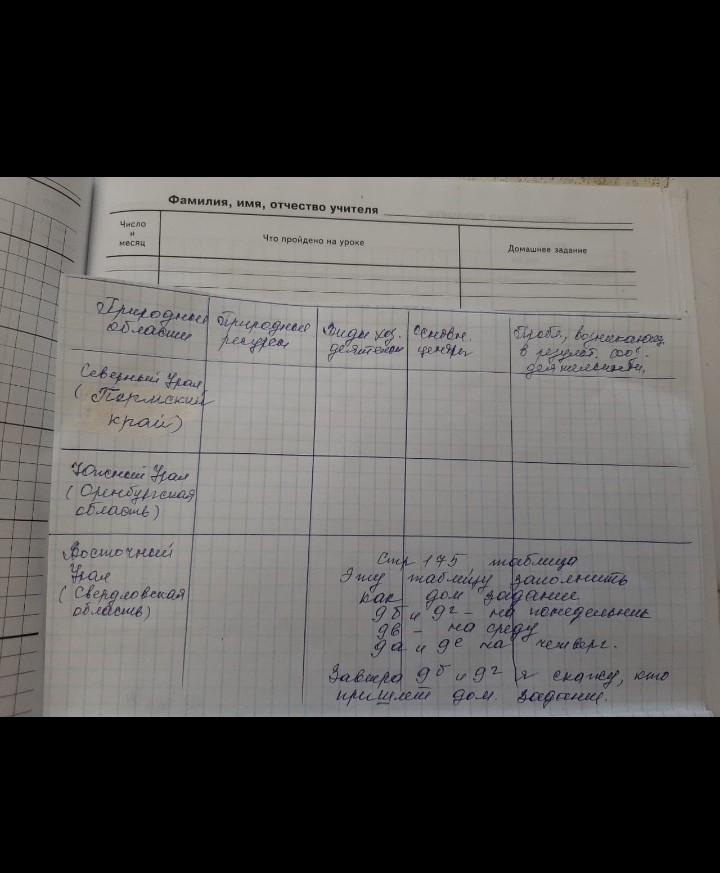 Фамилия, имя, отчество учителя
Число и месяц
Что пройдено на уроке
Домашнее задание
Природные области
Природные ресурсы
Виды хоз. деятельн
Основн. центры
Пробл., возникающ. в результ. хоз. деятельности,
Северный Урал
(Пермский
край)
Южный Урал
(Оренбургская
область)
Восточный
Урал
(Свердловская
область)
Стр 175 таблица
Эту таблицу заполнить
как дом задание
9б и 9г - на понедельник
9в - на среду
9а и 9е на четверг.
Завтра 9б и 9г я скажу, кто
пришлет дом. задание.